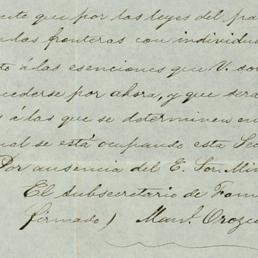 que por las leyes del pa
las fronteras con individu
to á las esenciones que V. do
cederse por ahora, y que será
s á las que se determinen en
ual se está ocupando esta Se
Por ausencia del E. Sor. Min
El subsecretario de Fom
firmado) Manl. Orozco